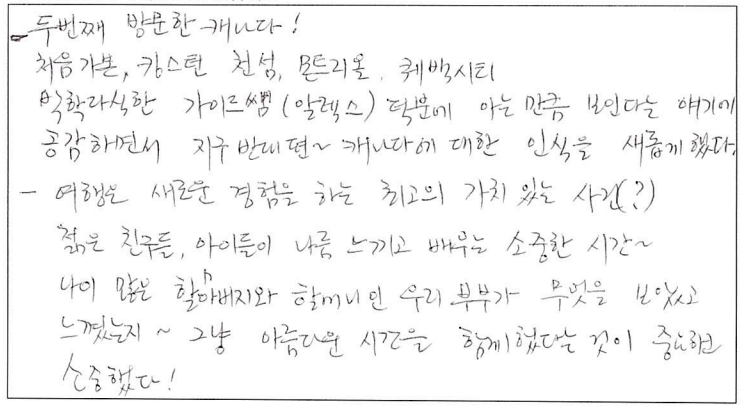 - 두번째 방문한 캐나다!
처음가본, 킹스턴 천섬, 몬트리올, 퀘백시티
박학다식한 가이드쌤(알렉스) 덕분에 아는 만큼 보인다는 얘기에
공감하면서 지구 반대편~ 캐나다에 대한 인식을 새롭게 했다.
- 여행은 새로운 경험을 하는 최고의 가치 있는 사건(?)
젊은 친구들, 아이들이 나름 느끼고 배우는 소중한 시간~
나이 많은 할아버지와 할머니인 우리 부부가 무엇을 보았고
느꼈는지~ 그냥 아름다운 시간을 함께했다는 것이 중요하고
소중했다!